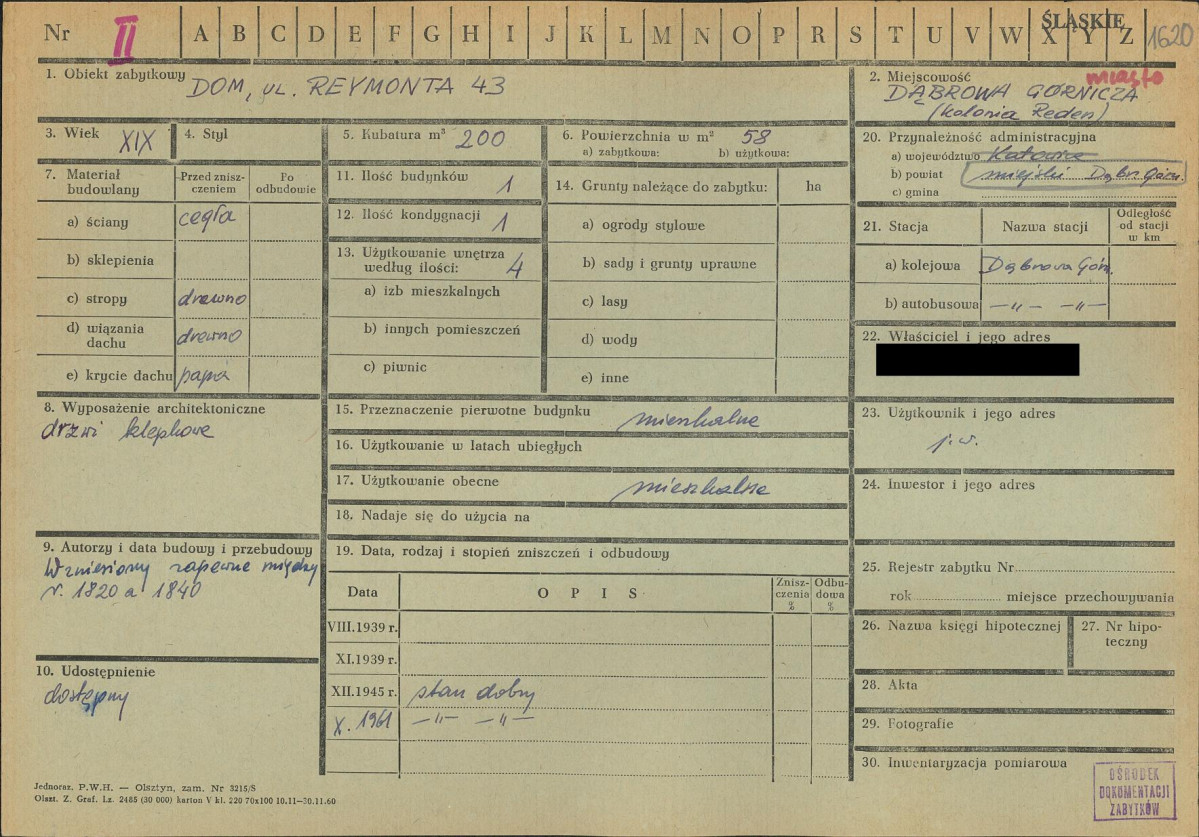 Nr II A B C D E F G H I J K L M N O P R S T U V W X Y Z ŚLĄSKIE 1620
1. Obiekt zabytkowy DOM, ul. REYMONTA 43
2. Miejscowość miasto
DĄBROWA GÓRNICZA
(kolonia Reden)
3. Wiek XIX
4. Styl
5. Kubatura m³ 200
6. Powierzchnia w m² 58
a) zabytkowa: b) użytkowa:
7. Materiał budowlany
Przed zniszczeniem
Po odbudowie
a) ściany cegła
b) sklepienia
c) stropy drewno
d) wiązania dachu drewno
e) krycie dachu papa
8. Wyposażenie architektoniczne
drzwi klepkowe
9. Autorzy i data budowy i przebudowy
Wzniesiony zapewne między
r. 1820 a 1840
10. Udostępnienie
dostępny
11. Ilość budynków 1
12. Ilość kondygnacji 1
13. Użytkowanie wnętrza
według ilości: 4
a) izb mieszkalnych
b) innych pomieszczeń
c) piwnic
14. Grunty należące do zabytku: ha
a) ogrody stylowe
b) sady i grunty uprawne
c) lasy
d) wody
e) inne
15. Przeznaczenie pierwotne budynku mieszkalne
16. Użytkowanie w latach ubiegłych
17. Użytkowanie obecne mieszkalne
18. Nadaje się do użycia na
19. Data, rodzaj i stopień zniszczeń i odbudowy
Data
O P I S
Zniszczenia %
Odbudowa %
VIII.1939 r.
XI.1939 r.
XII.1945 r. stan dobry
X. 1961 —„— —„—
20. Przynależność administracyjna
a) województwo Katowice
b) powiat miejski Dąbr. Górn.
c) gmina
21. Stacja
Nazwa stacji
Odległość od stacji w km
a) kolejowa Dąbrowa Górn.
b) autobusowa —„— —„—
22. Właściciel i jego adres
23. Użytkownik i jego adres
j.w.
24. Inwestor i jego adres
25. Rejestr zabytku Nr
rok miejsce przechowywania
26. Nazwa księgi hipotecznej
27. Nr hipoteczny
28. Akta
29. Fotografie
30. Inwentaryzacja pomiarowa
OŚRODEK
DOKUMENTACJI
ZABYTKÓW
Jednoraz. P.W.H. — Olsztyn, zam. Nr 3215/S
Olszt. Z. Graf. Lz. 2485 (30 000) karton V kl. 220 70x100 10.11—30.11.60